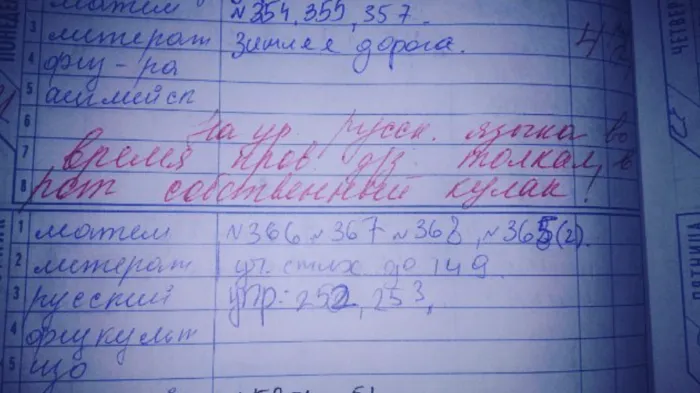 матем №354, 355, 357.
3 литерат Зимняя дорога. 4
4 физ-ра
5 английск
6 На ур. русск. языка во
7 время пров д/з толкал в
8 рот собственный кулак!
1 матем №366, №367 №368, №365(2).
2 литерат уч. стих до 149
3 русский упр: 252, 253,
4 физкульт
5 изо